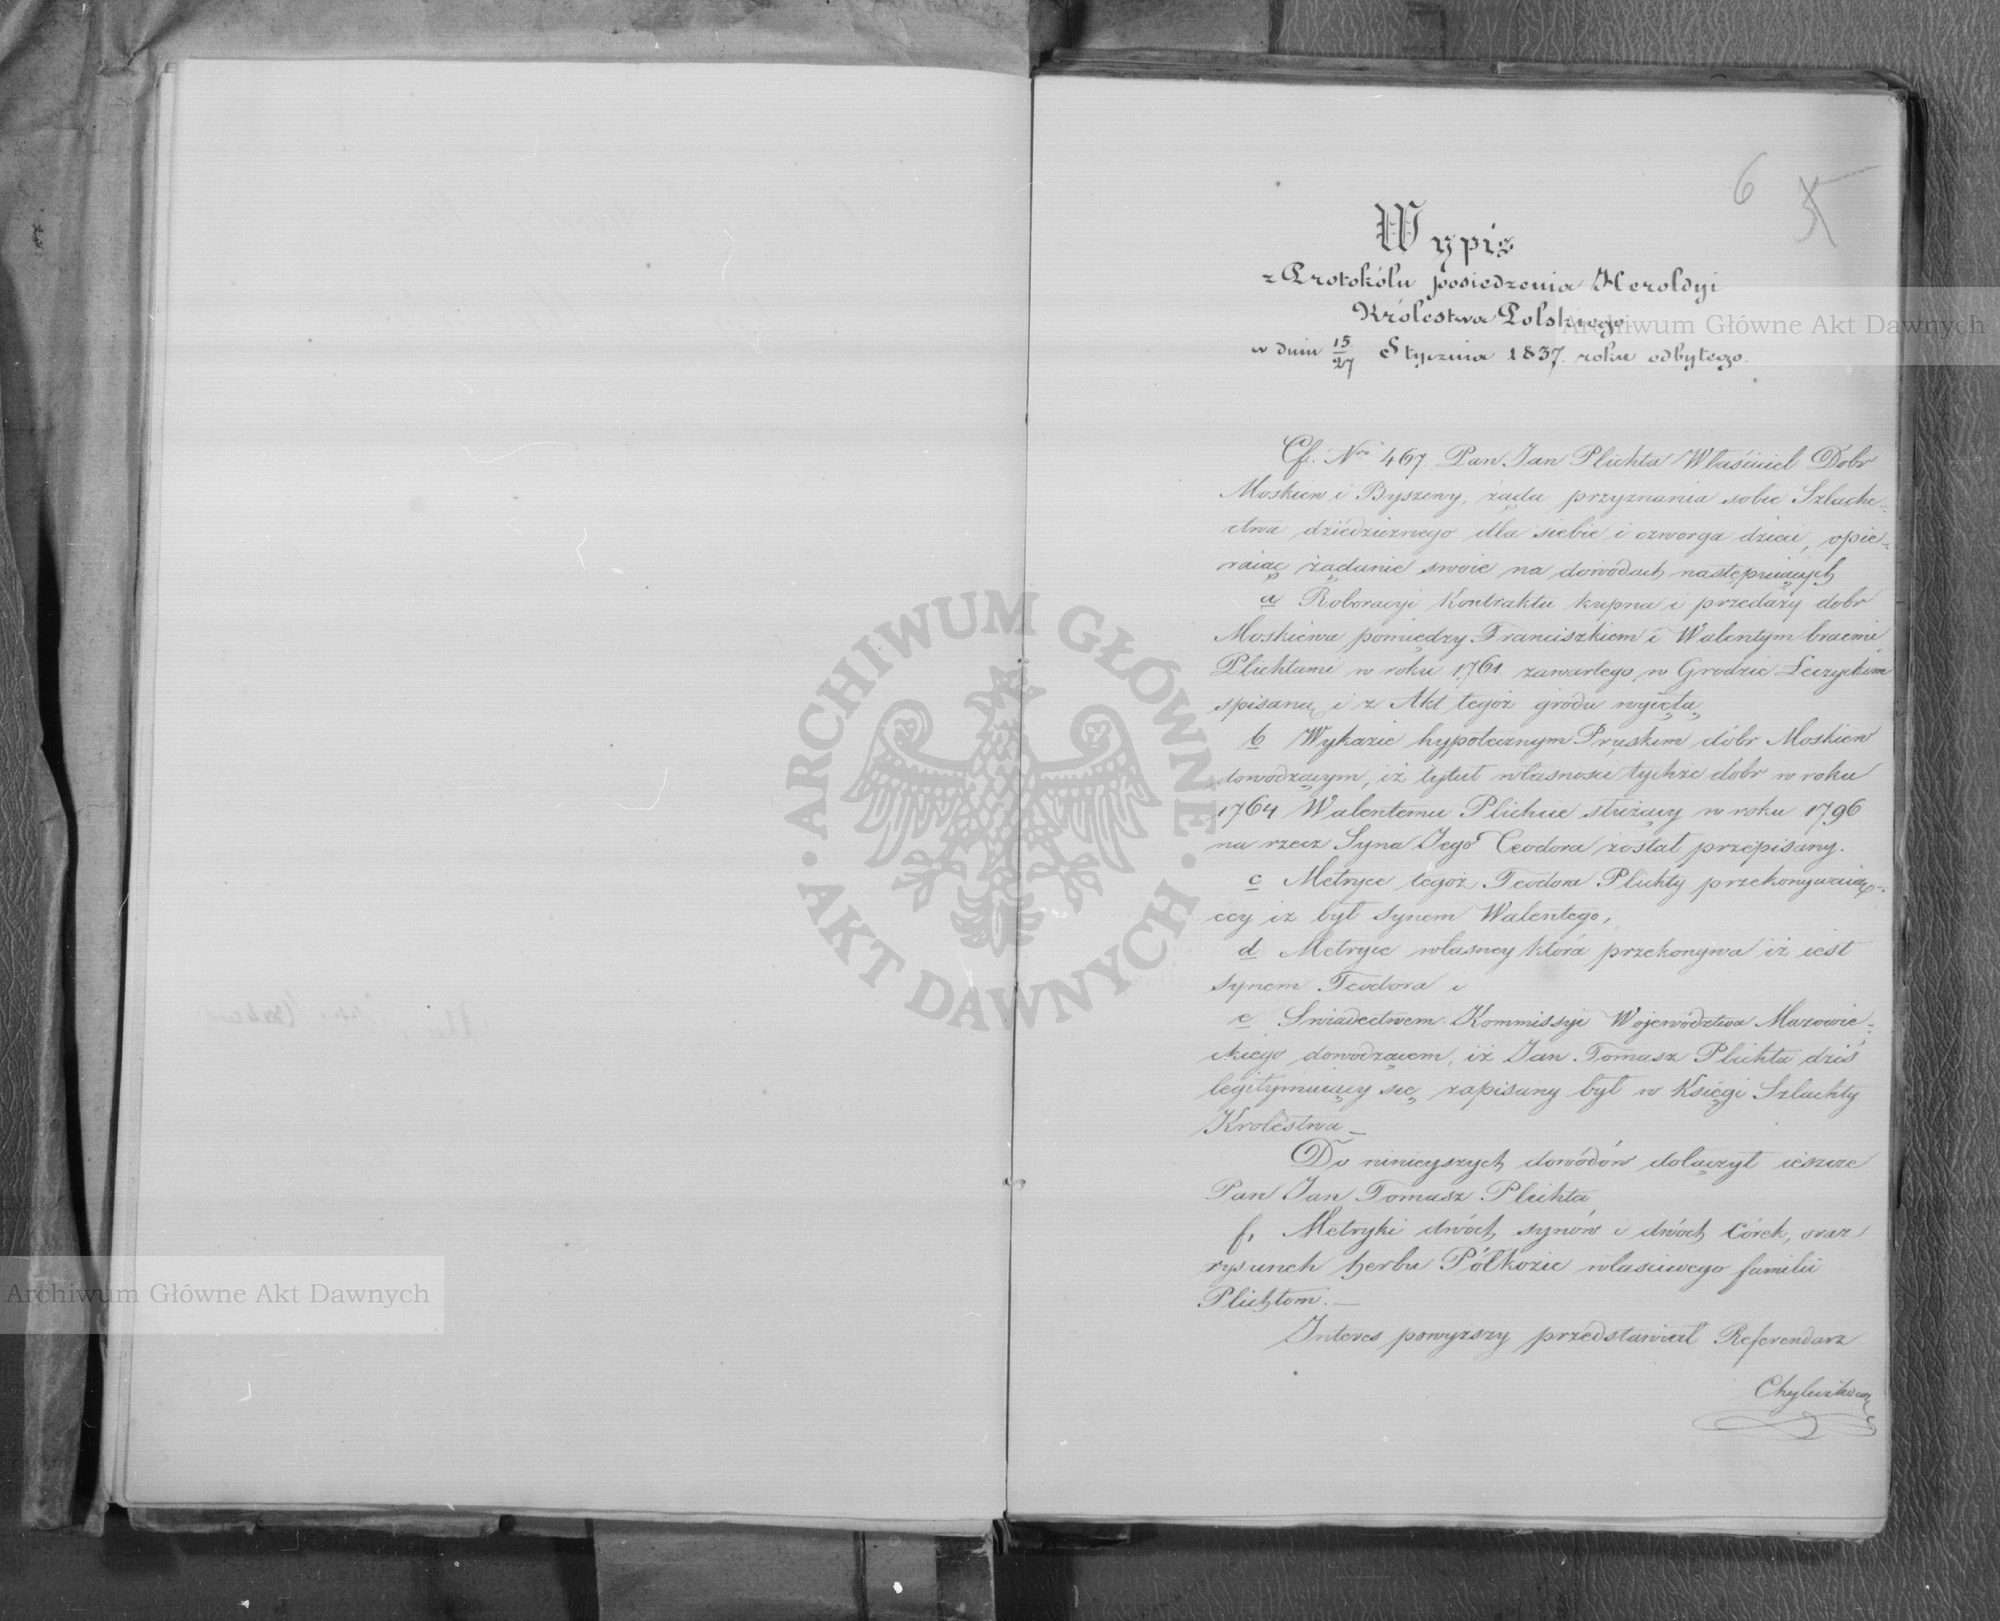 6
Wypis
z Protokólu posiedzenia Heroldyi
Królestwa Polskiego
w dniu 15/27 Stycznia 1837. roku odbytego.
Cf. Nro 467. Pan Jan Plichta Właściciel Dobr
Moskiew i Byszewy, żąda przyznania sobie Szlache-
ctwa dziedzicznego dla siebie i czworga dzieci, opie-
raiąc żądanie swoie na dowodach następuiących
a Roboracyi Kontraktu kupna i przedaży dobr
Moskiewa pomiędzy Franciszkiem i Walentym bracmi
Plichtami w roku 1761. zawartego, w Grodzie Łęczyckim
spisaną i z Akt tegoż grodu wyiętą
b Wykazie hypotecznym Pruskim dóbr Moskiew
dowodzącym, iż tytuł własności tychże dobr w roku
1764 Walentemu Plichcie służący w roku 1796
na rzecz Syna Jego Teodora został przepisany.
c Metryce tegoż Teodora Plichty przekonywaią-
cey iż był synem Walentego,
d Metryce własney która przekonywa iż iest
synem Teodora i
e Swiadectwem Kommissyi Województwa Mazowie-
ckiego dowodzącem, iż Jan Tomasz Plichta dziś
legitymuiący się zapisany był w Księgi Szlachty
Krolestwa —
Do ninieyszych dowódów dołączył ieszcze
Pan Jan Tomasz Plichta
f, Metryki dwóch synów i dwóch Córek, oraz
rysunek herbu Półkozic właściwego familii
Plichtom. —
Interes powyższy przedstawiał Referendarz
Archiwum Główne Akt Dawnych
Archiwum Główne Akt Dawnych
ARCHIWUM GŁÓWNE • AKT DAWNYCH •